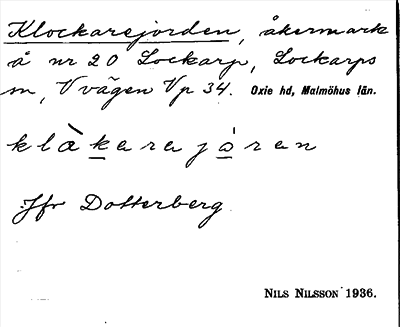 Klockarejorden, åkermark
å nr 20 Lockarp, Lockarps
sn, V vägen Vp 34. Oxie hd, Malmöhus län.
klàkarajóran
Jfr Dotterberg
NILS NILSSON 1936.